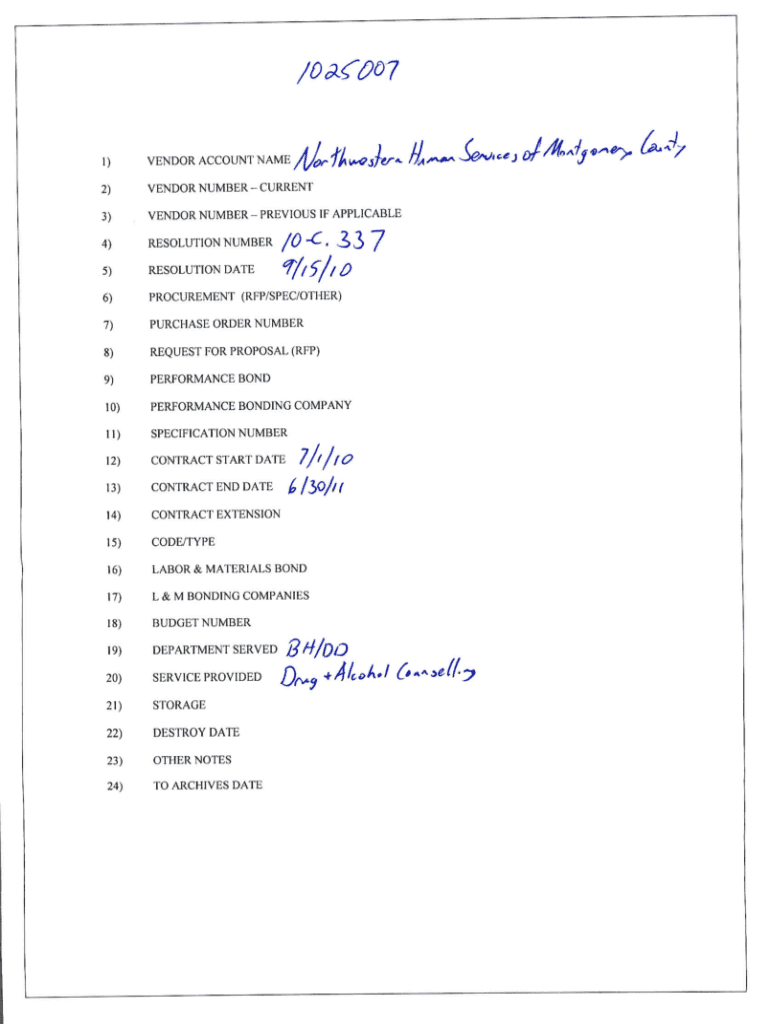 1025007
1) VENDOR ACCOUNT NAME Northwestern Human Services of Montgomery County
2) VENDOR NUMBER – CURRENT
3) VENDOR NUMBER – PREVIOUS IF APPLICABLE
4) RESOLUTION NUMBER 10-C. 337
5) RESOLUTION DATE 9/15/10
6) PROCUREMENT (RFP/SPEC/OTHER)
7) PURCHASE ORDER NUMBER
8) REQUEST FOR PROPOSAL (RFP)
9) PERFORMANCE BOND
10) PERFORMANCE BONDING COMPANY
11) SPECIFICATION NUMBER
12) CONTRACT START DATE 7/1/10
13) CONTRACT END DATE 6/30/11
14) CONTRACT EXTENSION
15) CODE/TYPE
16) LABOR & MATERIALS BOND
17) L & M BONDING COMPANIES
18) BUDGET NUMBER
19) DEPARTMENT SERVED BH/DD
20) SERVICE PROVIDED Drug + Alcohol Counselling
21) STORAGE
22) DESTROY DATE
23) OTHER NOTES
24) TO ARCHIVES DATE